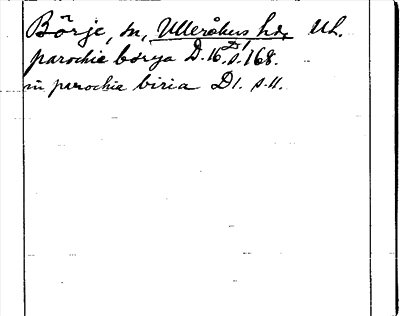 Börje, sn, Ulleråkers hd, Ul.
parochie børya D. 16. D1 s. 168.
in parochia biria D1. s. 11.